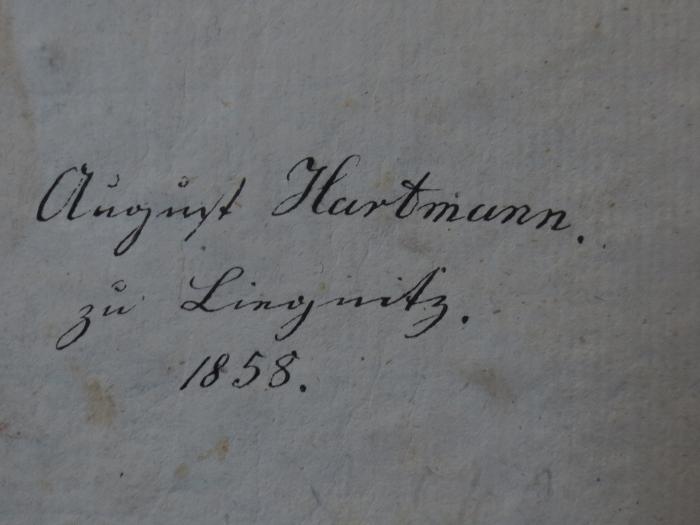 August Hartmann.
zu Liegnitz.
1858.